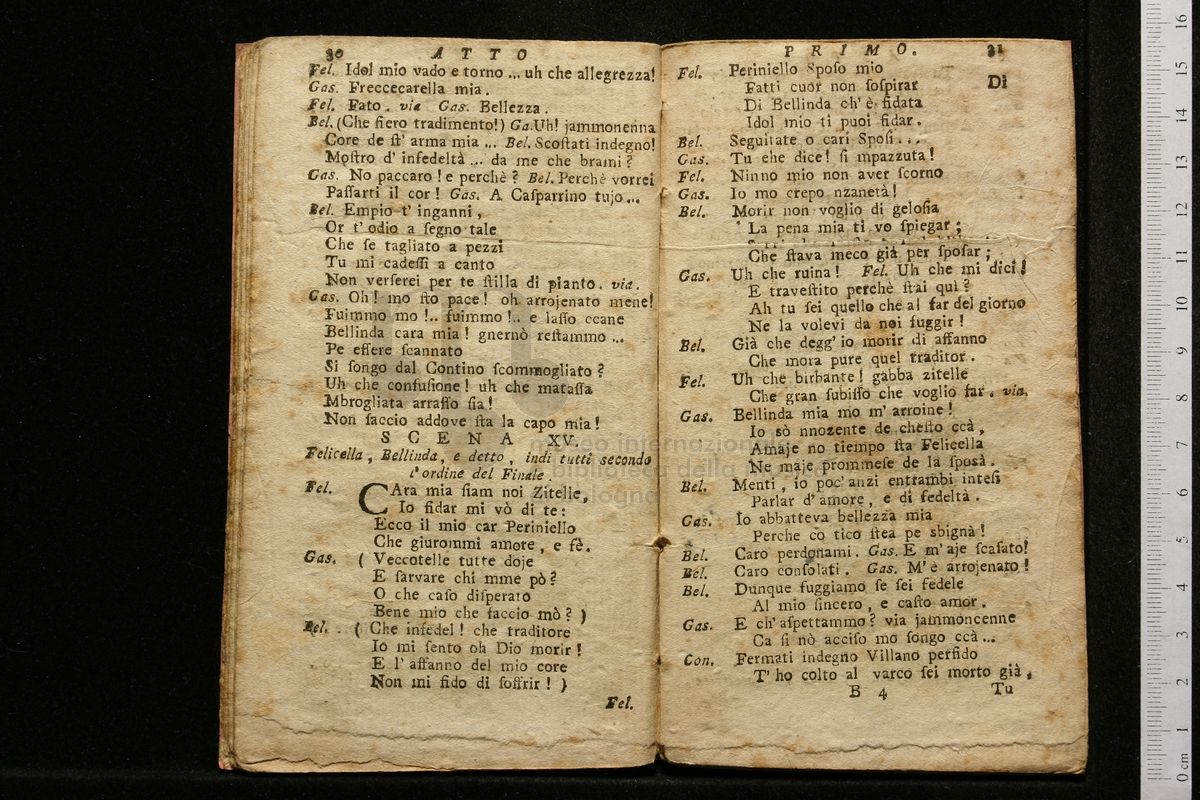 30 ATTO
Fel. Idol mio vado e torno ... uh che allegrezza!
Gas. Freccecarella mia.
Fel. Fato. via Gas. Bellezza.
Bel. (Che fiero tradimento!) Ga. Uh! jammonenna
Core de ſt' arma mia ... Bel. Scoſtati indegno!
Moſtro d' infedeltà ... da me che brami?
Gas. No paccaro! e perchè? Bel. Perchè vorrei
Paſſarti il cor! Gas. A Caſparrino tujo...
Bel. Empio t' inganni,
Or t' odio a ſegno tale
Che ſe tagliato a pezzi
Tu mi cadeſſi a canto
Non verſerei per te ſtilla di pianto. via.
Gas. Oh! mo ſto pace! oh arrojenato mene!
Fuimmo mo!.. fuimmo!.. e laſſo ccane
Bellinda cara mia! gnernò reſtammo ...
Pe eſſere ſcannato
Si ſongo dal Contino ſcommogliato?
Uh che confuſione! uh che mataſſa
Mbrogliata arraſſo ſia!
Non ſaccio addove ſta la capo mia!
SCENA XV.
Felicella, Bellinda, e detto, indi tutti secondo
l'ordine del Finale.
Fel. CAra mia ſiam noi Zitelle,
Io fidar mi vò di te:
Ecco il mio car Periniello
Che giurommi amore, e fè.
Gas. ( Veccotelle tutte doje
E ſarvare chi mme pò?
O che caſo diſperato
Bene mio che faccio mò? )
Bel. ( Che infedel! che traditore
Io mi ſento oh Dio morir!
E l' affanno del mio core
Non mi fido di ſoffrir! )
Fel.
PRIMO. 31
Fel. Periniello Spoſo mio
Fatti cuor non ſoſpirar
Di
Di Bellinda ch' è fidata
Idol mio ti puoi fidar.
Bel. Seguitate o cari Spoſi...
Gas. Tu che dice! ſi mpazzuta!
Fel. Ninno mio non aver ſcorno
Gas. Io mo crepo nzanetà!
Bel. Morir non voglio di geloſia
La pena mia ti vo ſpiegar;
Che ſtava meco già per ſpoſar;
Gas. Uh che ruina! Fel. Uh che mi dici!
E traveſtito perchè ſtai quì?
Ah tu ſei quello che al far del giorno
Ne la volevi da noi fuggir!
Bel. Già che degg' io morir di affanno
Che mora pure quel traditor.
Fel. Uh che birbante! gabba zitelle
Che gran ſubiſſo che voglio far. via.
Gas. Bellinda mia mo m' arroine!
Io sò nnozente de cheſto ccà,
Amaje no tiempo ſta Felicella
Ne maje prommeſe de la ſposà.
Bel. Menti, io poc' anzi entrambi inteſi
Parlar d' amore, e di fedeltà.
Gas. Io abbatteva bellezza mia
Perche cò tico ſtea pe sbignà!
Bel. Caro perdonami. Gas. E m' aje ſcaſato!
Bel. Caro conſolati. Gas. M' è arrojenato!
Bel. Dunque fuggiamo ſe ſei fedele
Al mio ſincero, e caſto amor.
Gas. E ch' aſpettammo? via jammoncenne
Ca ſi nò acciſo mo ſongo ccà...
Con. Fermati indegno Villano perfido
T' ho colto al varco ſei morto già,
B 4 Tu